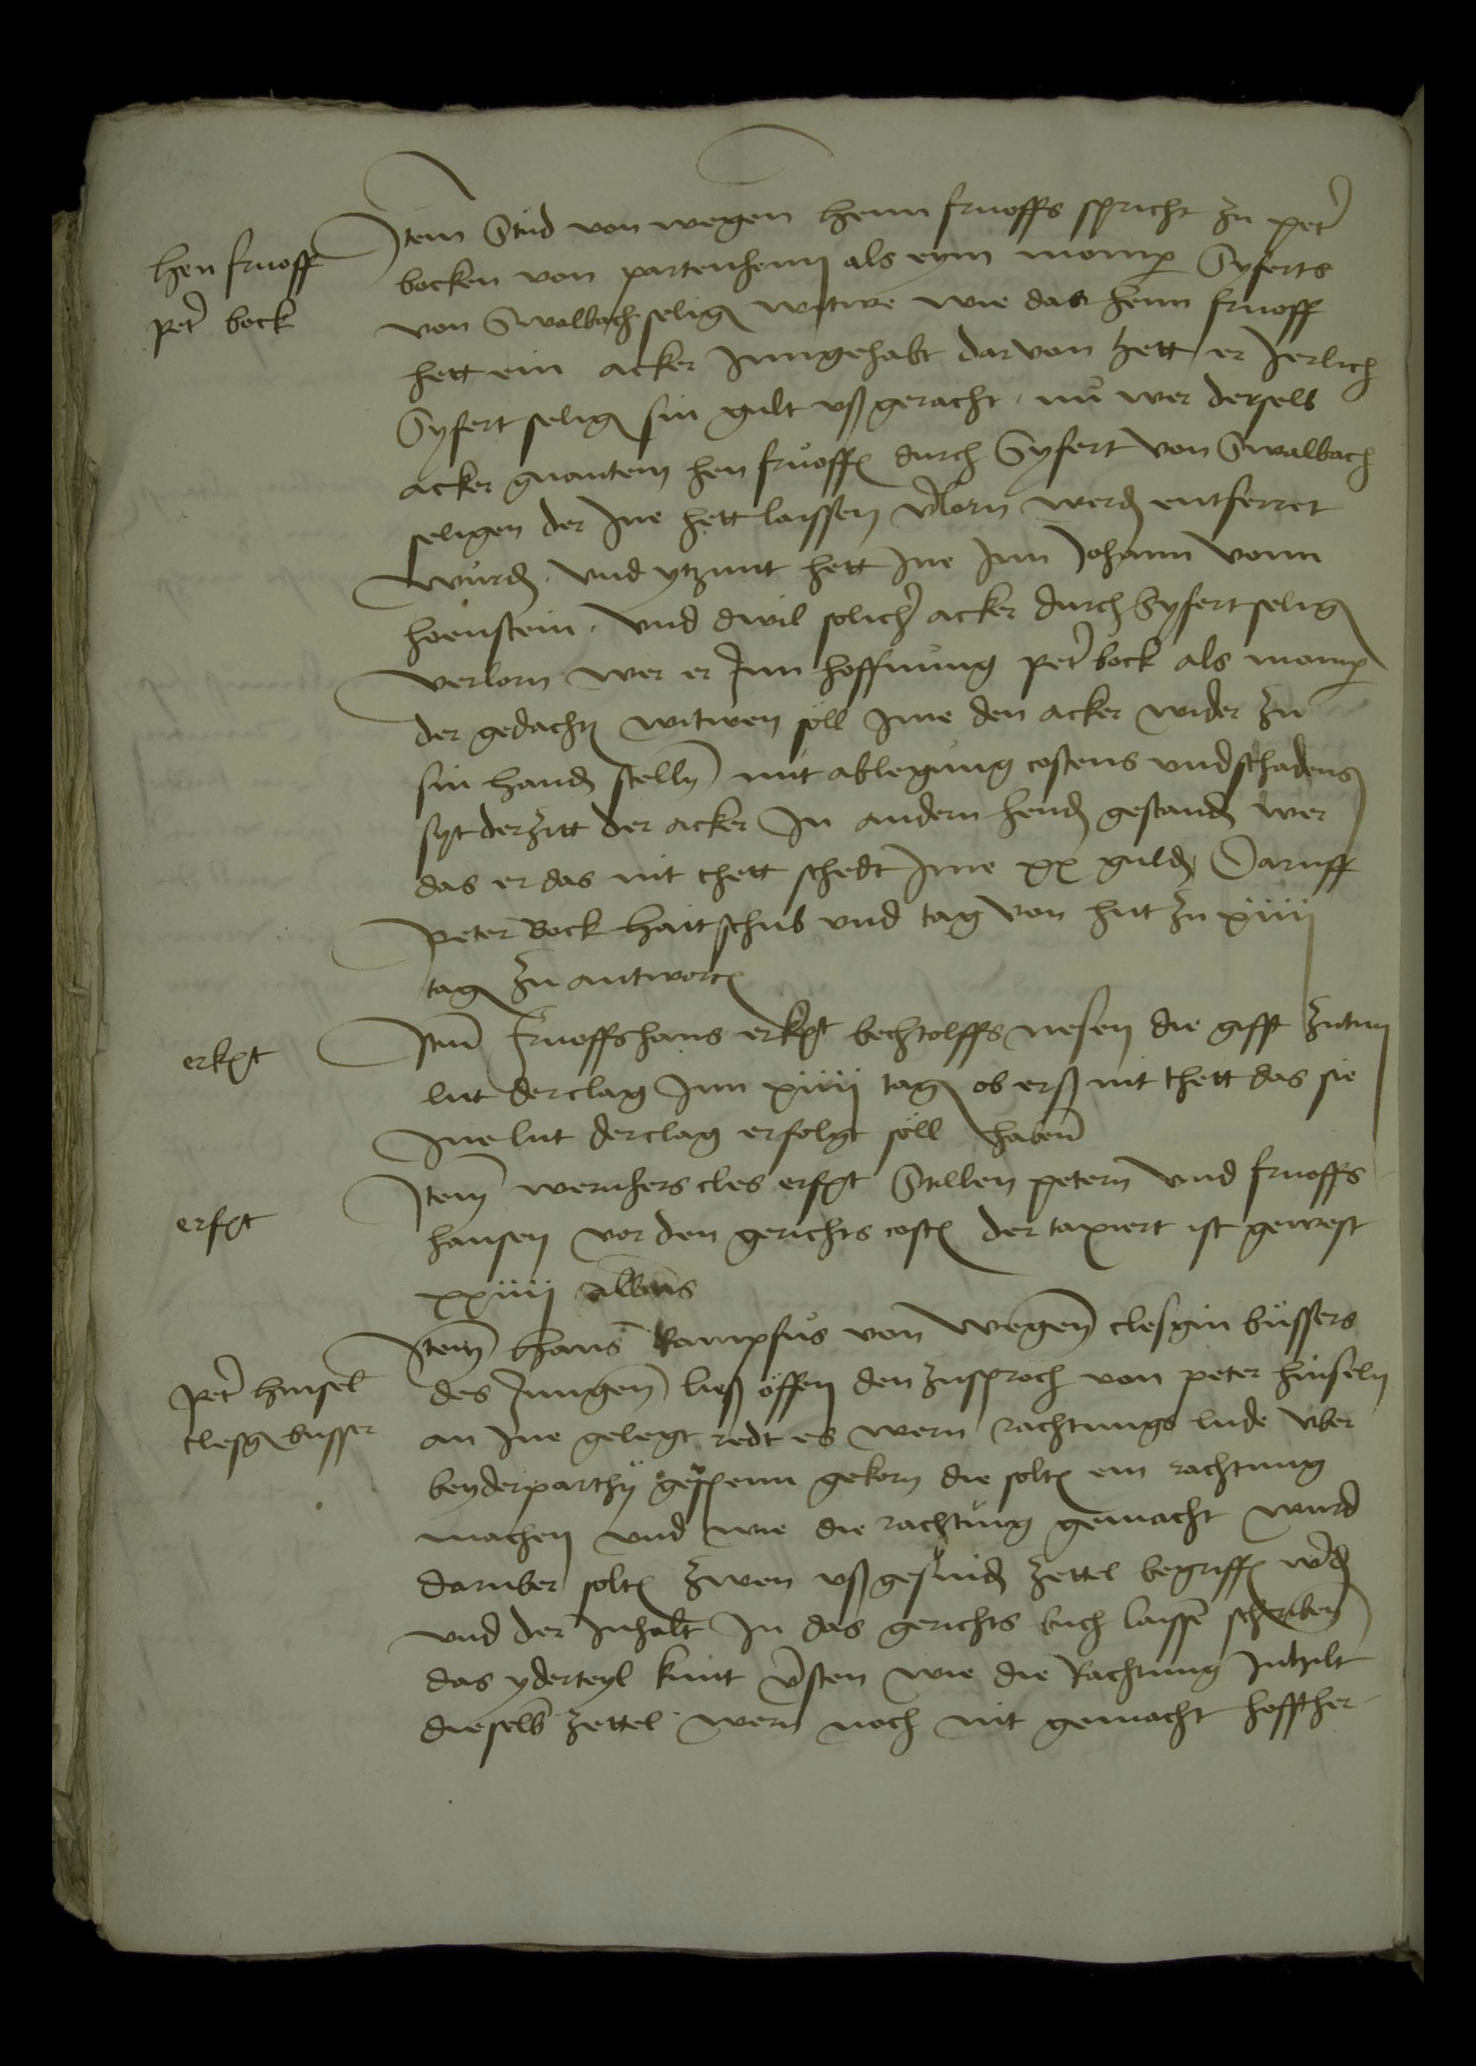 Hen fruoff
Peter bock
Item Stud von wegen Henn fruoffs spricht zu peter
bocken von partenheim als eym momper Syferts
von Swalbach selig witwe wie das Henn fruoff
hett ein acker Inngehabt dar von hett er Jerlich
Syfert selig sin gult ußgeracht nu wer derselb
acker gnantem hen fruoffen durch Syfert von Swalbach
seligen der Ine hett laissen verlorn werden entferret
wurden vnd ytzunt hett Ine Inn Johann vonn
hoenstein vnd dwil solicher acker durch Syfert selig
verlorn wer er Inn hoffnung peter bock als momper
der gedachten witwen soll Ime den acker wider zu
sin handen stellen mit ablegung costens vnd schadens
syt der zitt der acker In andern henden gestanden wer
das er das nit thett schedt Ime xx gulden Daruff
Peter Bock hait schub vnd tag von hut zu xiiii
tagen zu antworten
erkgt
Item Fruoffshans erkgt bechtolffs nesen die gifft zutun
lut der clag Inn xiiii tagen ob erß nit thett das sie
Ine lut der clag erfolgt soll haben
erfgt
Item wernhers cles erfgt Stillen petern vnd fruoffs
hansen vor den gerichts costen der taxiert ist gewest
xxiiii albus
Peter hinsel
clesgin busser
Item Hans Rampfus von wegen clesgin bussers
des Jungen ließ offen den zusproch von peter hinseln
an Ine gelegt redt es wern rachtungs lude vber
beyder parthy gekorn die solten ein rachtung
machen vnd wie die rachtung gemacht wurd
daruber solten zwen ußgesniden zettel begriffen werden
vnd der Inhalt In das gerichts buch laissen schriben
das yderteyl kunt versten wie die Rachtung Inhilt
dieselben zettel wern noch nit gemacht hofft her